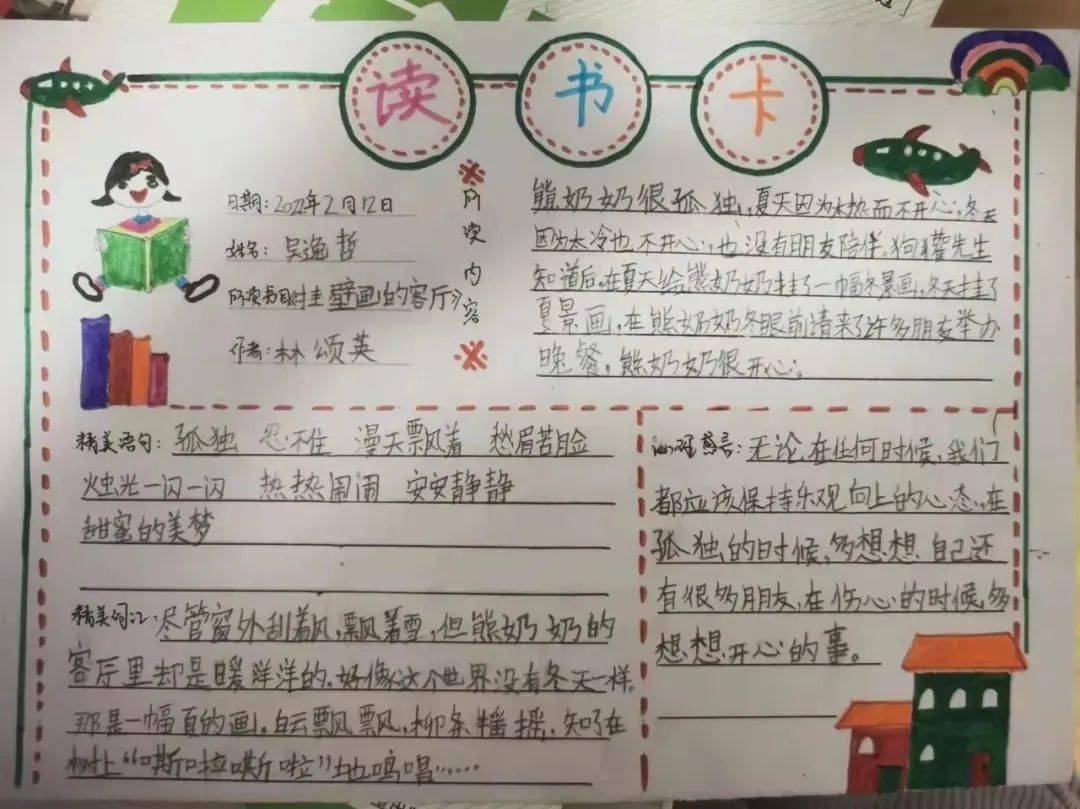 读书卡
日期:2022年2月12日
姓名:吴逸哲
所读书目《挂壁画的客厅》
作者:林颂英
※所读内容※
熊奶奶很孤独,夏天因为太热而不开心,冬天
因为太冷也不开心,也没有朋友陪伴。狗獾先生
知道后,在夏天给熊奶奶挂了一幅冬景画,冬天挂了
夏景画,在熊奶奶冬眠前请来了许多朋友举办
晚餐,熊奶奶很开心。
精美语句:孤独 忍不住 漫天飘着 愁眉苦脸
烛光一闪一闪 热热闹闹 安安静静
甜蜜的美梦
精美词汇:尽管窗外刮着风,飘着雪,但熊奶奶的
客厅里却是暖洋洋的,好像这个世界没有冬天一样。
那是一幅夏的画。白云飘飘,柳条摇摇,知了在
树上“嘶啦嘶啦”地鸣唱……
感言:无论在任何时候,我们
都应该保持乐观向上的心态,在
孤独的时候,多想想自己还
有很多朋友,在伤心的时候,多
想想开心的事。